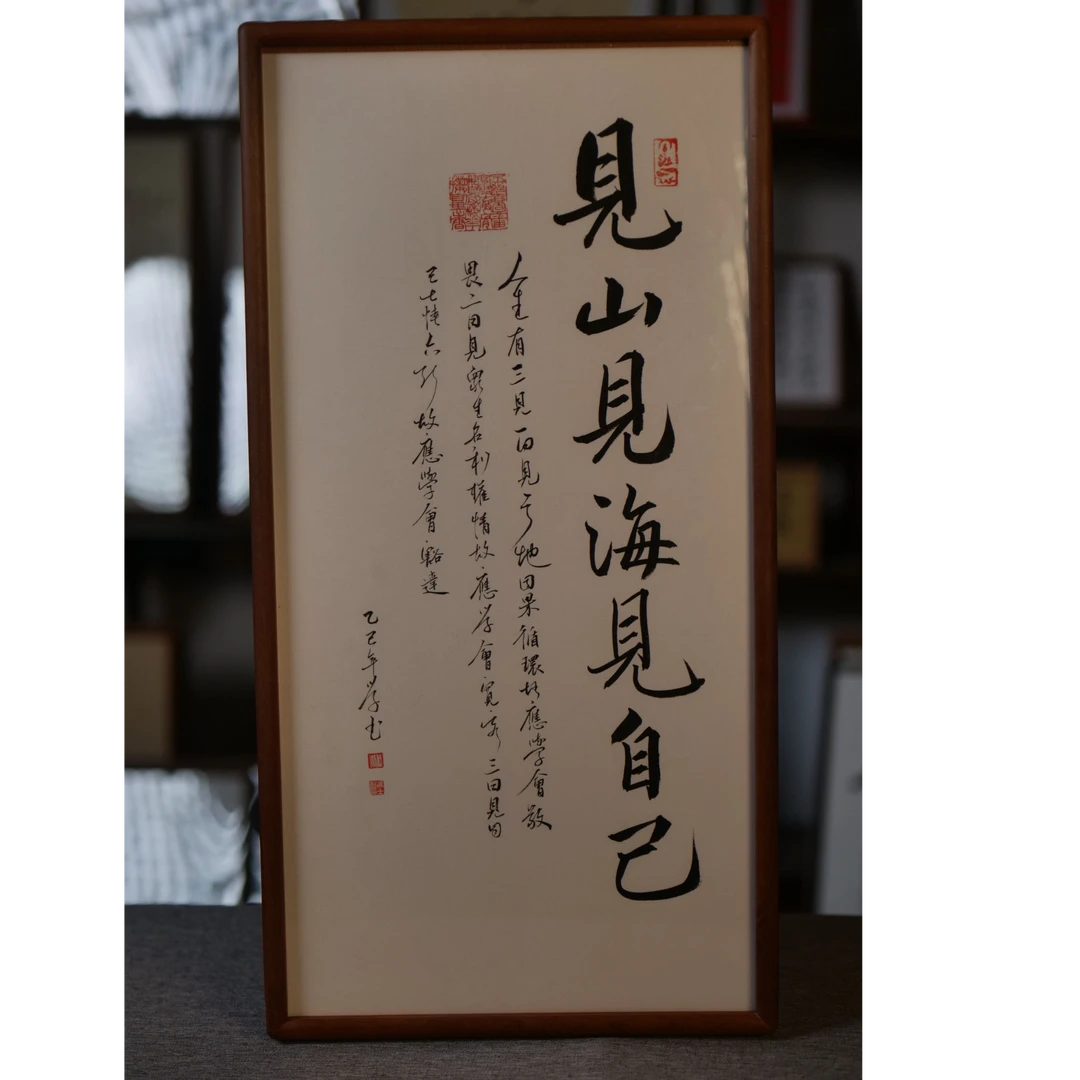 見山見海見自己
人生有三見一曰見天地因果循環故應學會敬
畏二曰見衆生名利權情故應學會寬容三曰見自
己七情六欲故應學會豁達
乙巳年學書